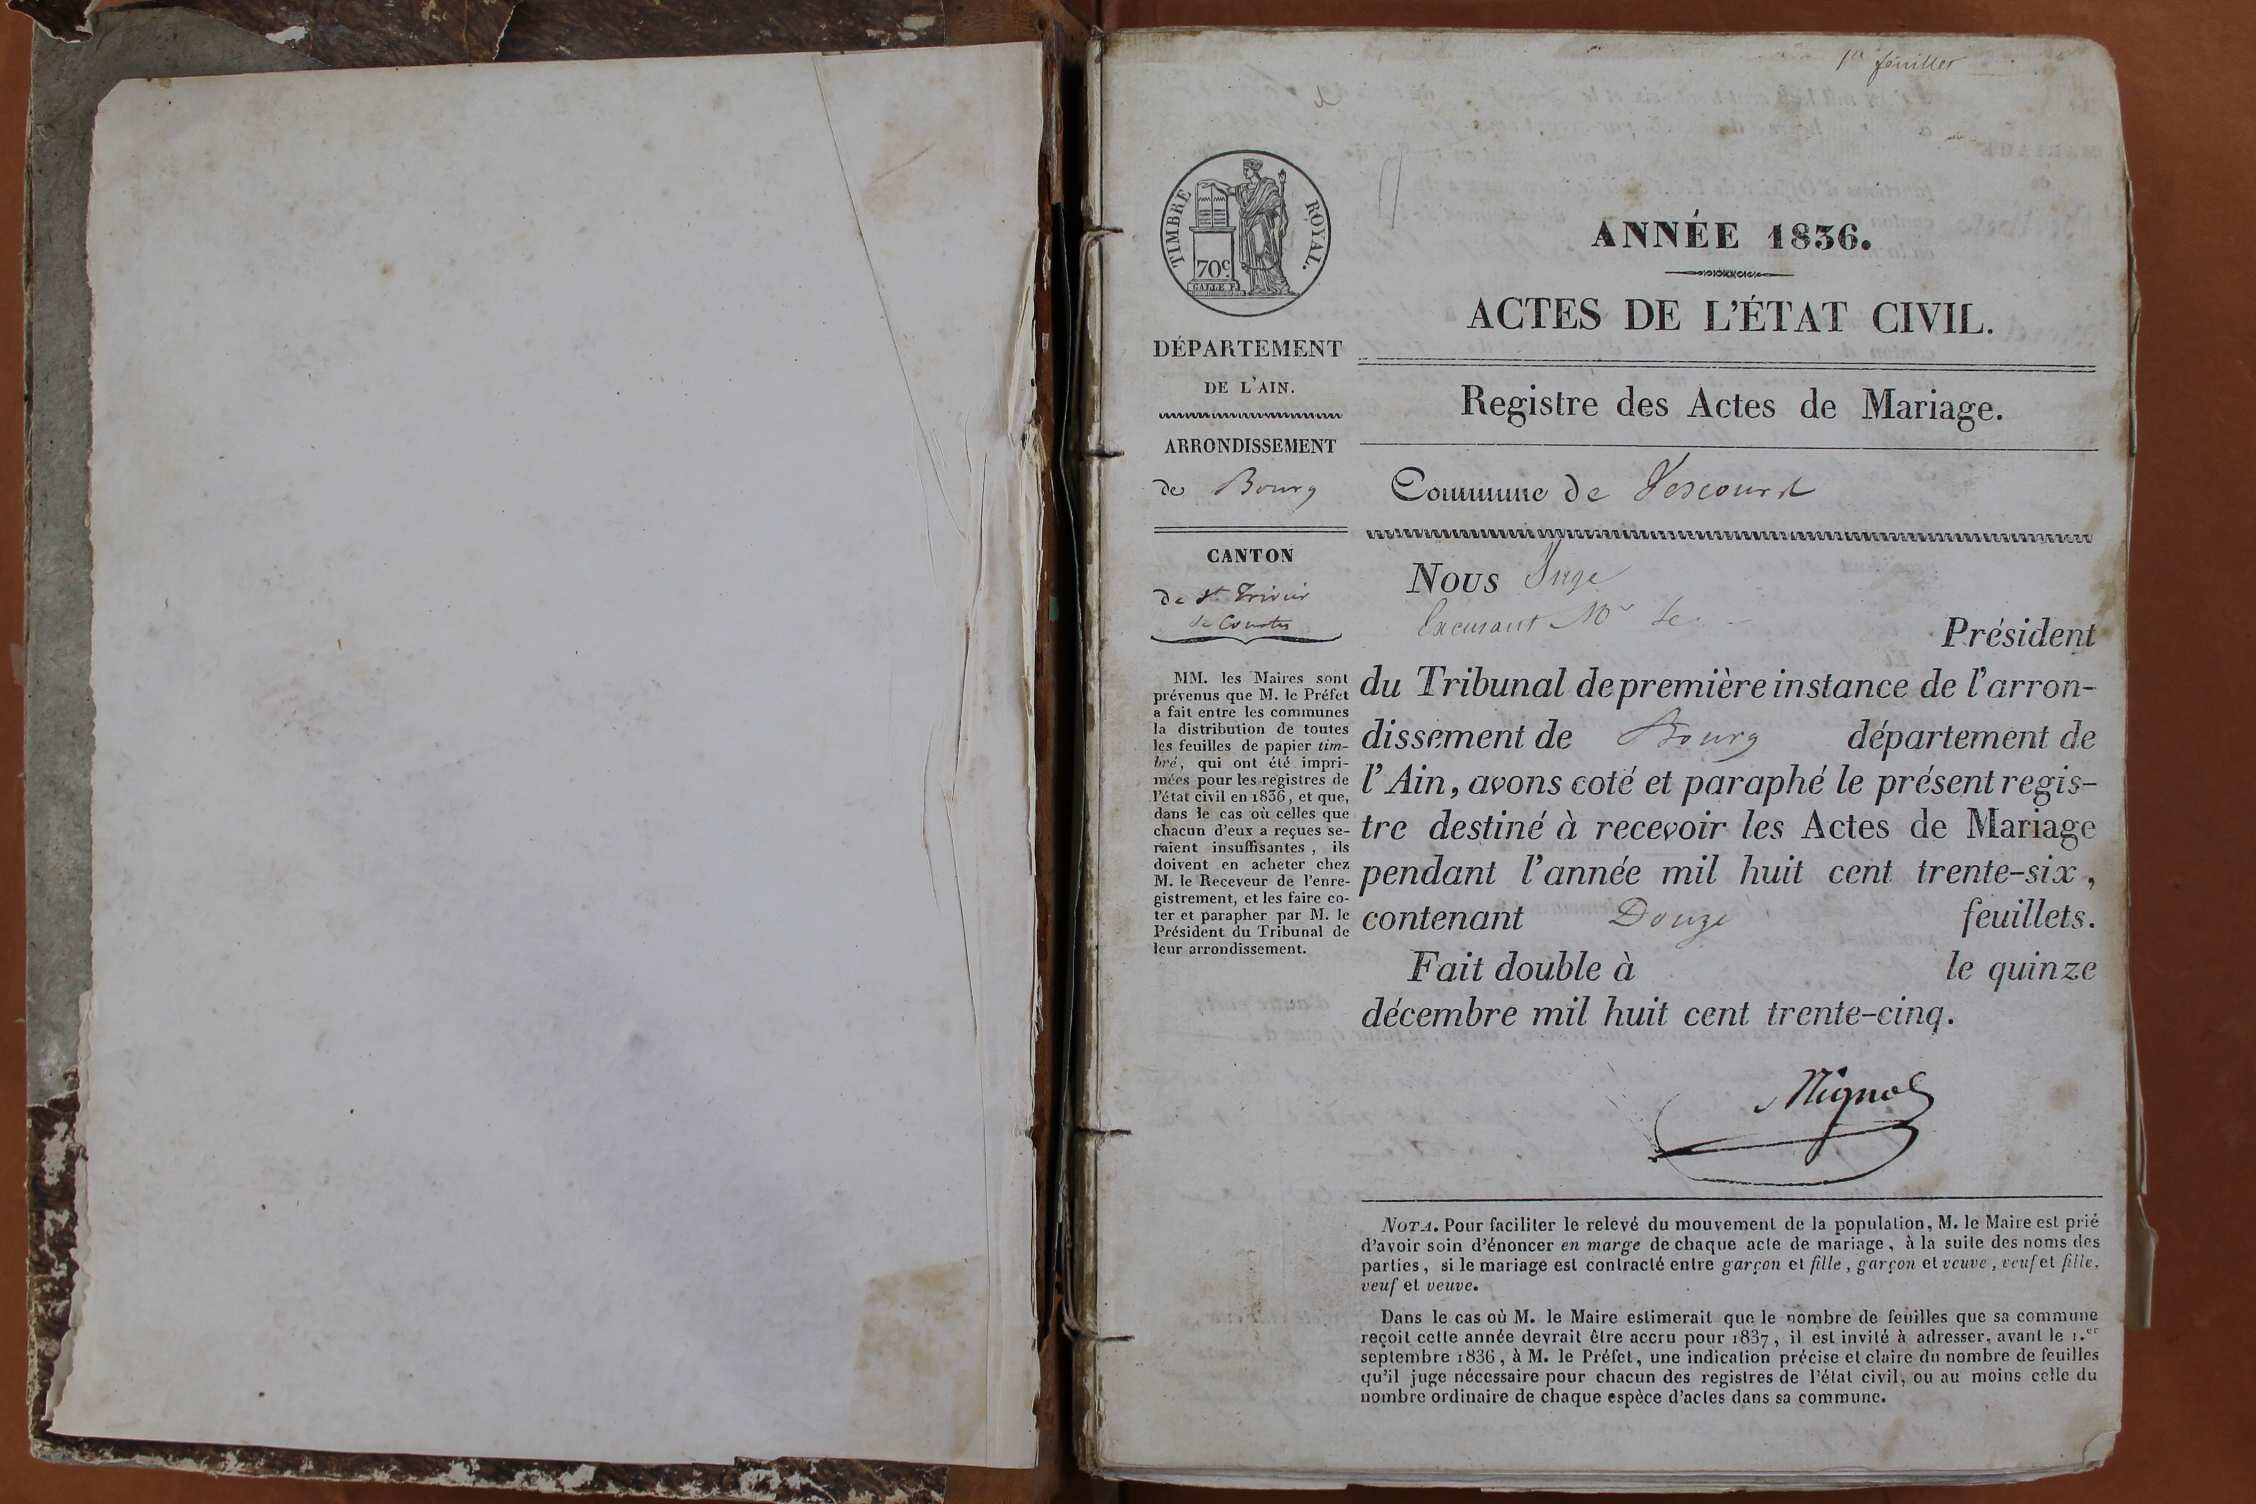 1er feuillet
TIMBRE ROYAL.
70c
GALLE F.
DÉPARTEMENT
DE L'AIN.
ARRONDISSEMENT
de Bourg
CANTON
de St Trivier
de Courtes
MM. les Maires sont
prévenus que M. le Préfet
a fait entre les communes
la distribution de toutes
les feuilles de papier tim-
bré, qui ont été impri-
mées pour les registres de
l'état civil en 1836, et que,
dans le cas où celles que
chacun d'eux a reçues se-
raient insuffisantes, ils
doivent en acheter chez
M. le Receveur de l'enre-
gistrement, et les faire co-
ter et parapher par M. le
Président du Tribunal de
leur arrondissement.
ANNÉE 1836.
ACTES DE L'ÉTAT CIVIL.
Registre des Actes de Mariage.
Commune de Vescours
Nous Juge
Excusant Mr le Président
du Tribunal de première instance de l'arron-
dissement de Bourg département de
l'Ain, avons coté et paraphé le présent regis-
tre destiné à recevoir les Actes de Mariage
pendant l'année mil huit cent trente-six,
contenant Douze feuillets.
Fait double à le quinze
décembre mil huit cent trente-cinq.
NOTA. Pour faciliter le relevé du mouvement de la population, M. le Maire est prié
d'avoir soin d'énoncer en marge de chaque acte de mariage, à la suite des noms des
parties, si le mariage est contracté entre garçon et fille, garçon et veuve, veuf et fille,
veuf et veuve.
Dans le cas où M. le Maire estimerait que le nombre de feuilles que sa commune
reçoit cette année devrait être accru pour 1837, il est invité à adresser, avant le 1.er
septembre 1836, à M. le Préfet, une indication précise et claire du nombre de feuilles
qu'il juge nécessaire pour chacun des registres de l'état civil, ou au moins celle du
nombre ordinaire de chaque espèce d'actes dans sa commune.